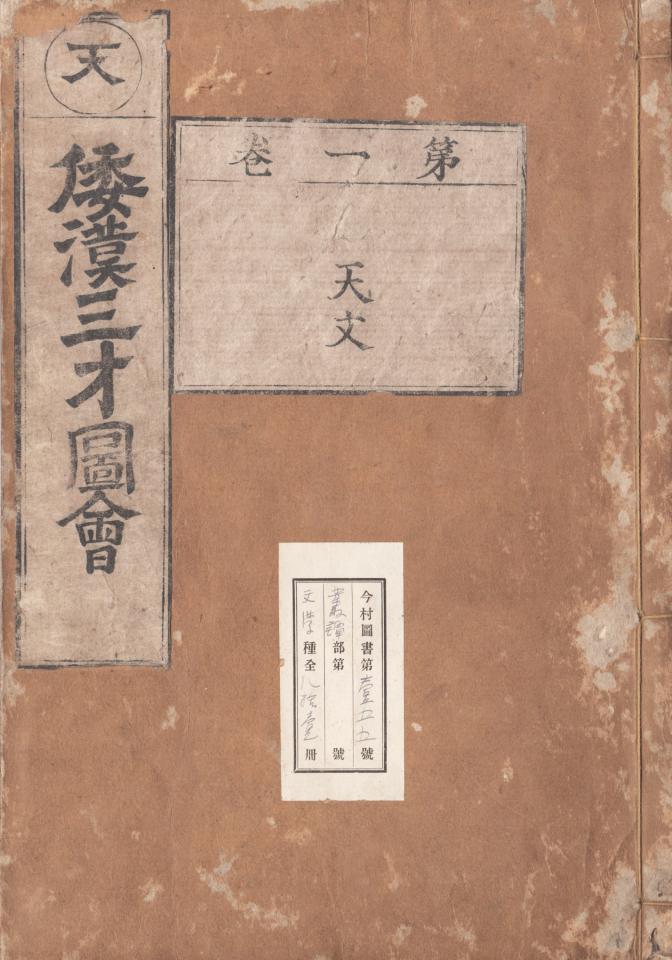 天
倭漢三才圖會
第一巻
天文
今村圖書第壹五五號
叢 部第 號
文學種全八拾壹冊